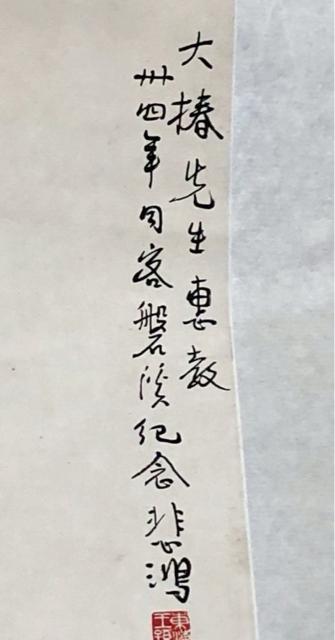 大椿先生惠教
卅四年同客磐溪纪念 悲鸿